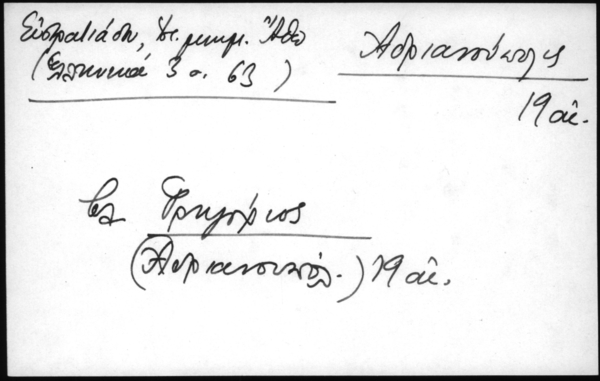 Εὐστρατιάδη, Ἱστ. μνημ. Ἄθω
(Ἑλληνικά 3 σ. 63)
Ἀδριανούπολις
19 αἰ.
βλ Γρηγόριος
(Ἀδριανουπόλ.) 19 αἰ.